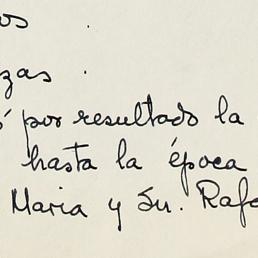 os
zas .
ó por resultado la
hasta la época
Maria y Sr. Rafa